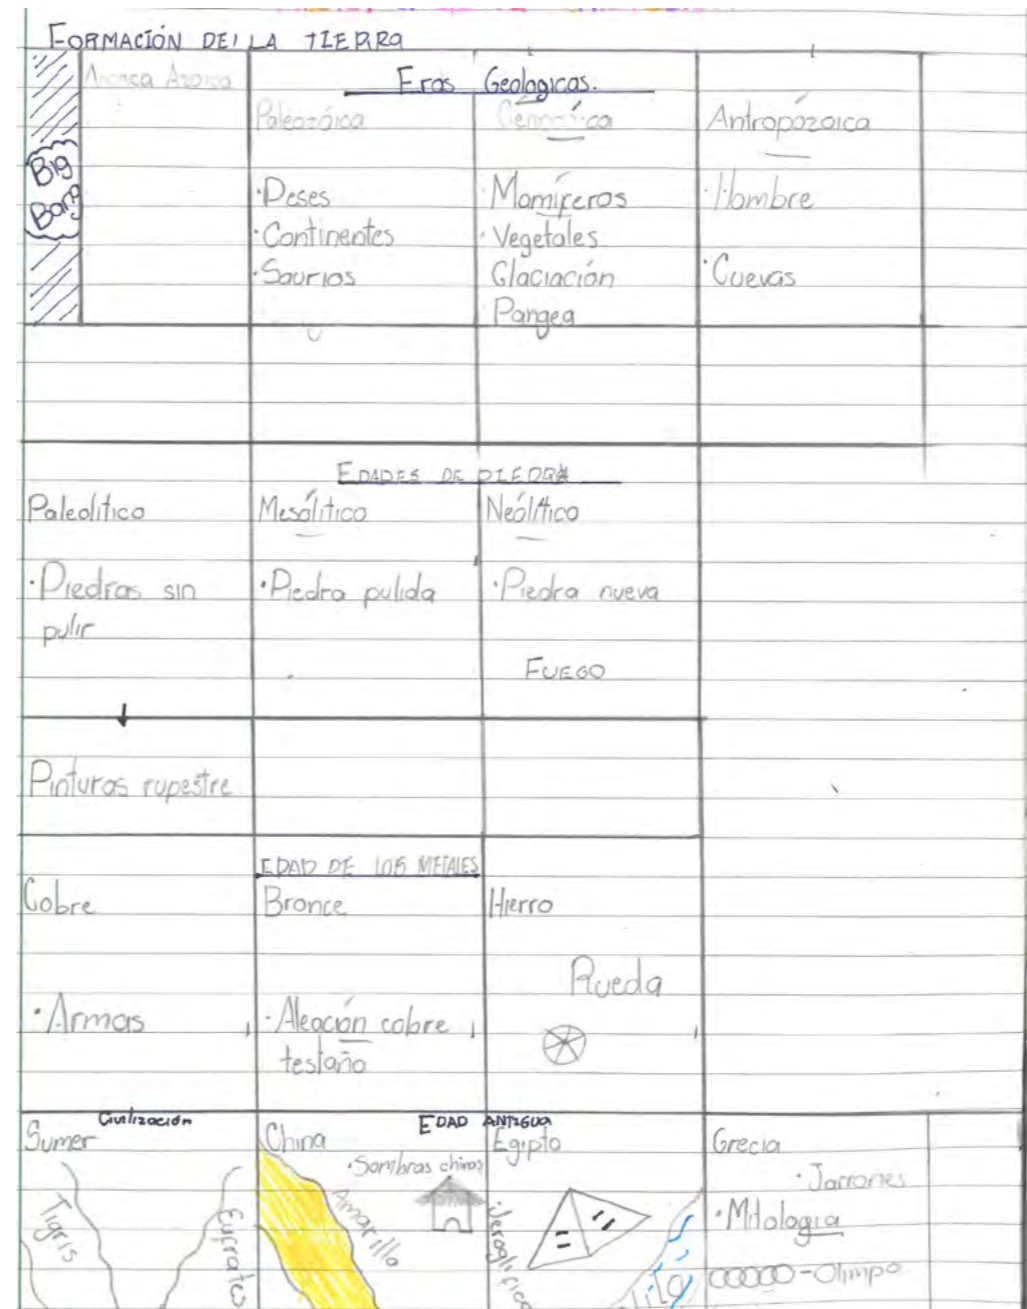 FORMACIÓN DE LA TIERRA
Azoica
Eras Geologicas.
Paleozóica
Antropózoica
Big
Bang
·Peses
·Continentes
·Saurios
·Mamíferos
·Vegetales
Glaciación
Pangea
·Hombre
·Cuevas
EDADES DE PIEDRA
Paleolítico
Mesólítico
Neólítico
·Piedras sin
pulir
·Piedra pulida
·Piedra nueva
FUEGO
Pinturas rupestre
EDAD DE LOS METALES
Cobre
Bronce
Hierro
·Armas
·Aleación cobre
testaño
Rueda
Civilización
EDAD ANTIGUA
Sumer
Tigris
Eufrates
China
·Sombras chinas
Amarillo
Egipto
Grecia
·Jarrones
·Mitologia
-Olimpo